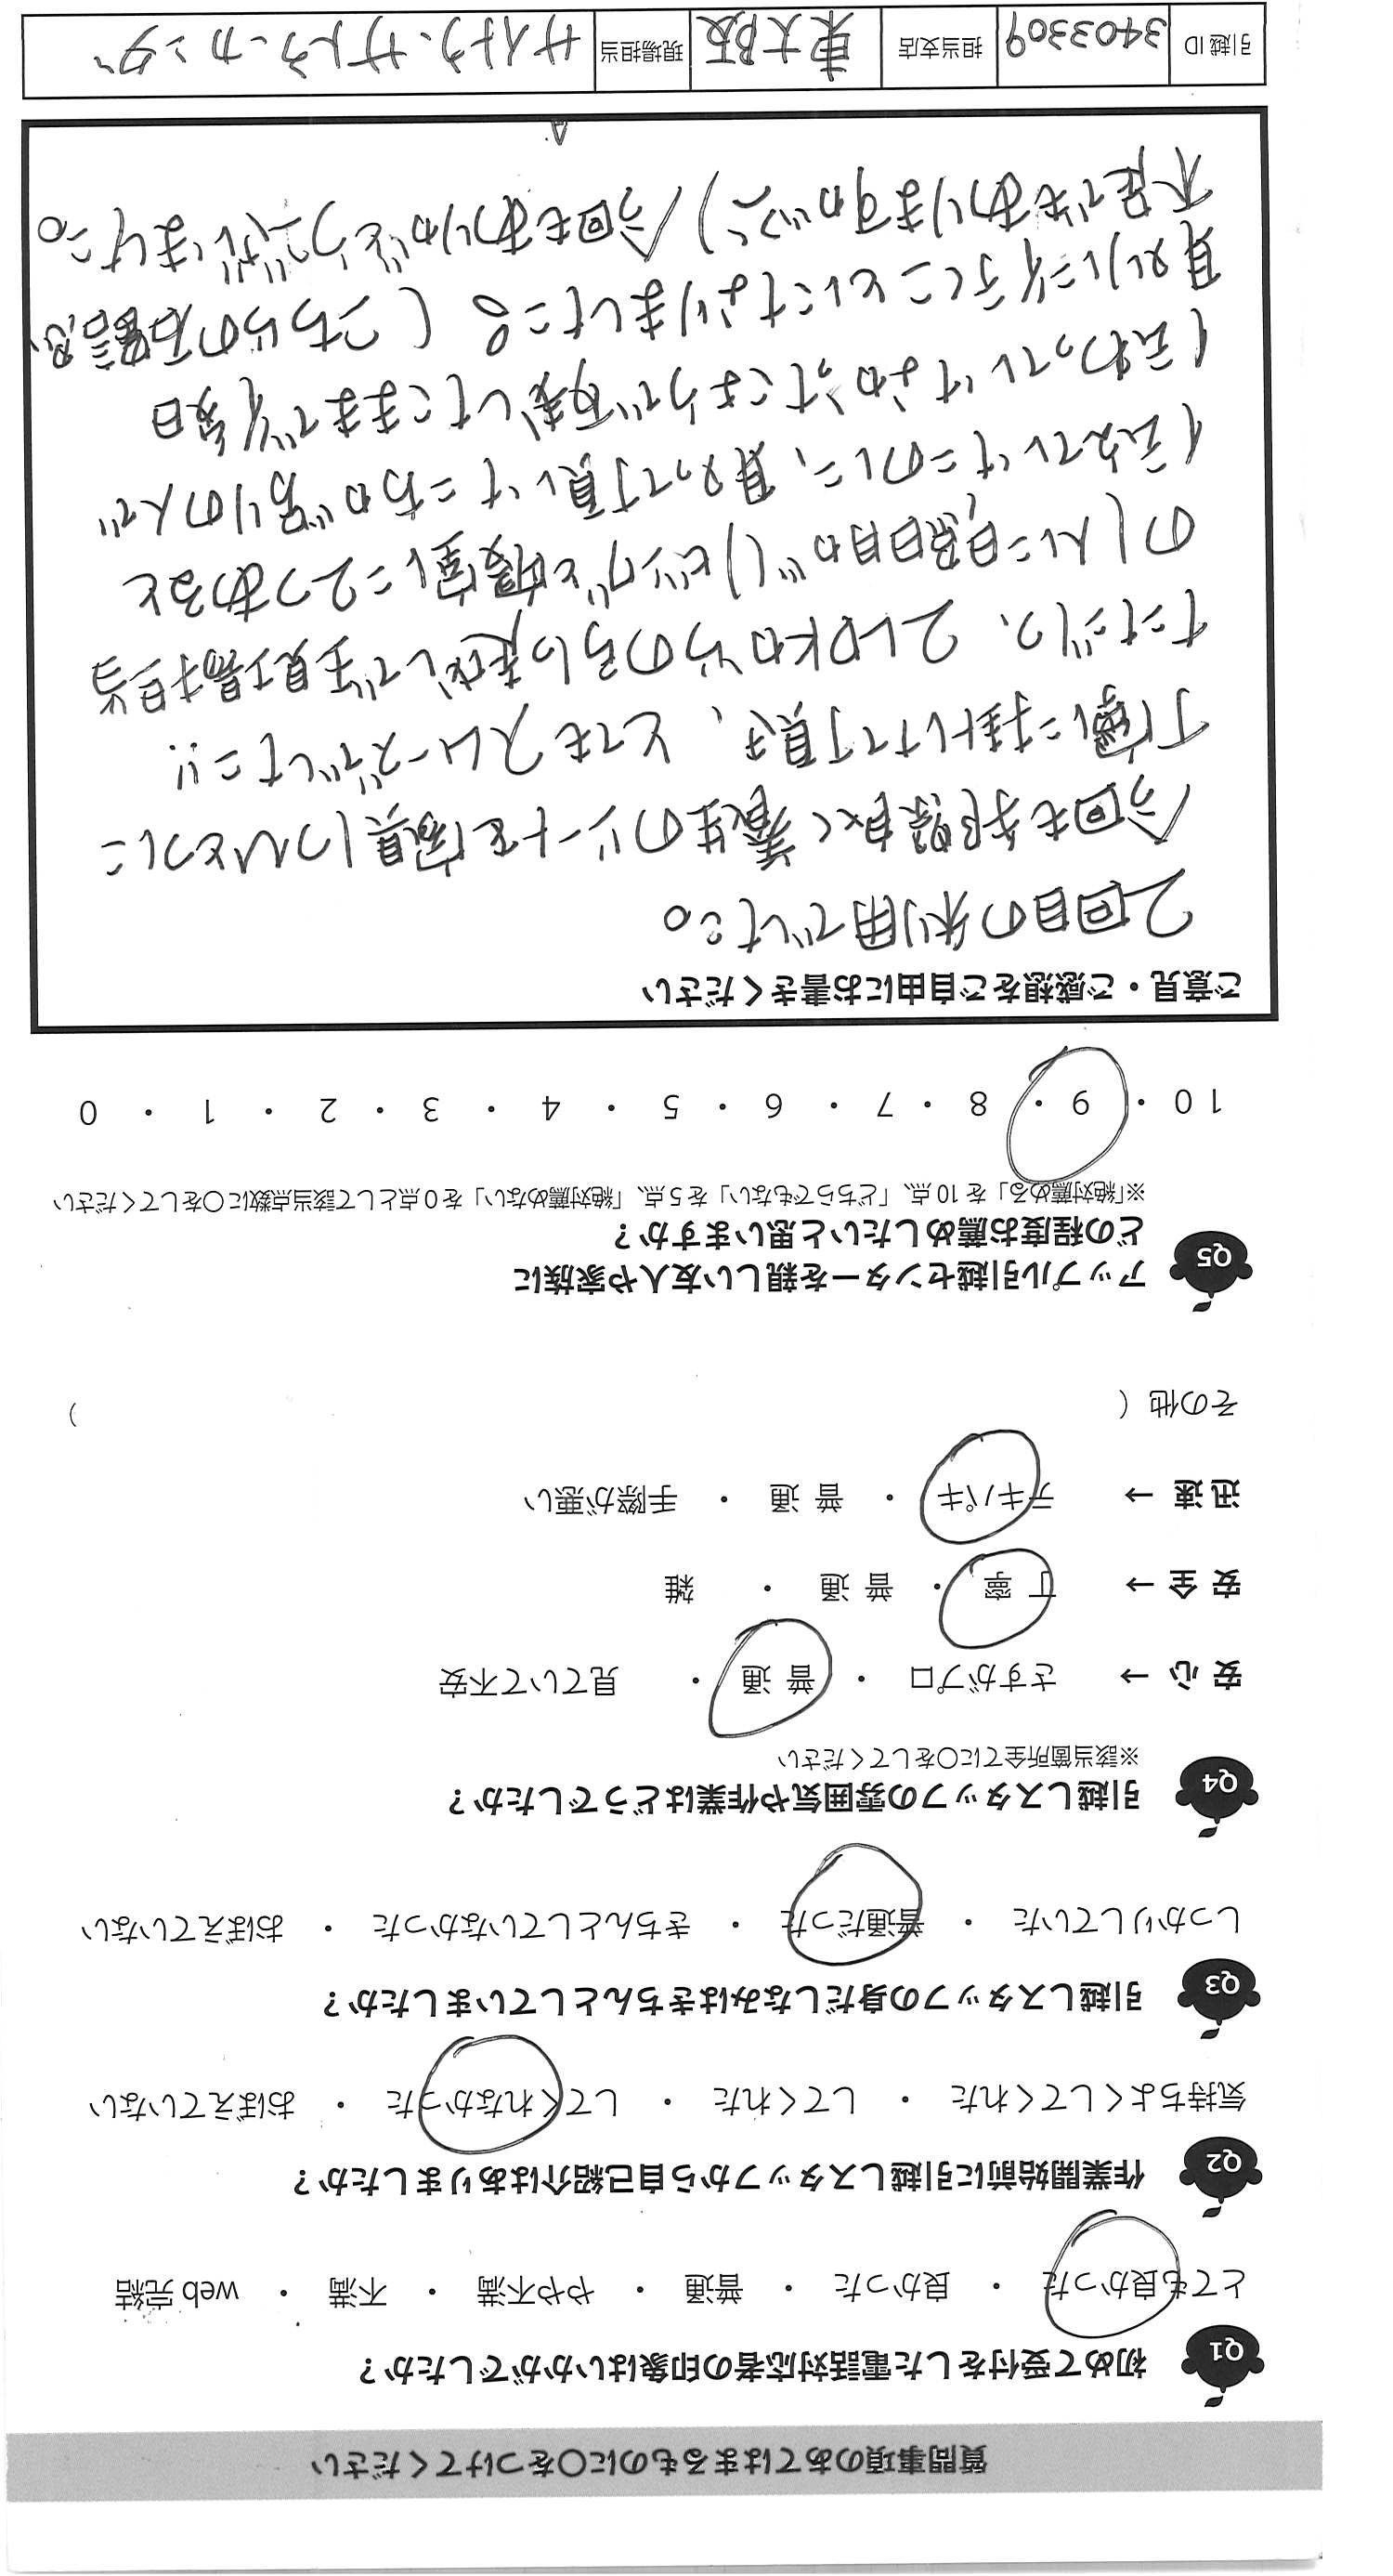 質問事項のあてはまるものに〇をつけてください
Q1 初めて受付をした電話対応者の印象はいかがでしたか？
とても良かった ・ 良かった ・ 普通 ・ やや不満 ・ 不満 ・ web 完結
Q2 作業開始前に引越しスタッフから自己紹介はありましたか？
気持ちよくしてくれた ・ してくれた ・ してくれなかった ・ おぼえていない
Q3 引越しスタッフの身だしなみはきちんとしていましたか？
しっかりしていた ・ 普通だった ・ きちんとしていなかった ・ おぼえていない
Q4 引越しスタッフの雰囲気や作業はどうでしたか？
※該当箇所全てに〇をしてください
安 心 → さすがプロ ・ 普 通 ・ 見ていて不安
安 全 → 丁 寧 ・ 普 通 ・ 雑
迅 速 → テキパキ ・ 普 通 ・ 手際が悪い
その他 （ ）
Q5 アップル引越センターを親しい友人や家族に
どの程度お薦めしたいと思いますか？
※「絶対薦める」を 10 点、「どちらでもない」を 5 点、「絶対薦めない」を 0 点として該当点数に〇をしてください
10 ・ 9 ・ 8 ・ 7 ・ 6 ・ 5 ・ 4 ・ 3 ・ 2 ・ 1 ・ 0
ご意見・ご感想をご自由にお書きください
2回目の利用でした。
今回も手際良く養生のシートを家具1つひとつに
丁寧に掛けて頂き、とてもスムーズでした!!
ただ1つ、2LDKからの引っ越しで現場担当
の人に照明が(リビングと寝室に2つあると
伝えていたのに、見つて頂いた方が周りの人で
伝わっていなかったようで可愛したままで翌日
取りに行くことになりました。(こちらの確認
不足でもありますが…) 今回もありがとうございました。
引越 ID 3403309 担当支店 東大阪 現場担当 サイトウ・サトウ・カンダ